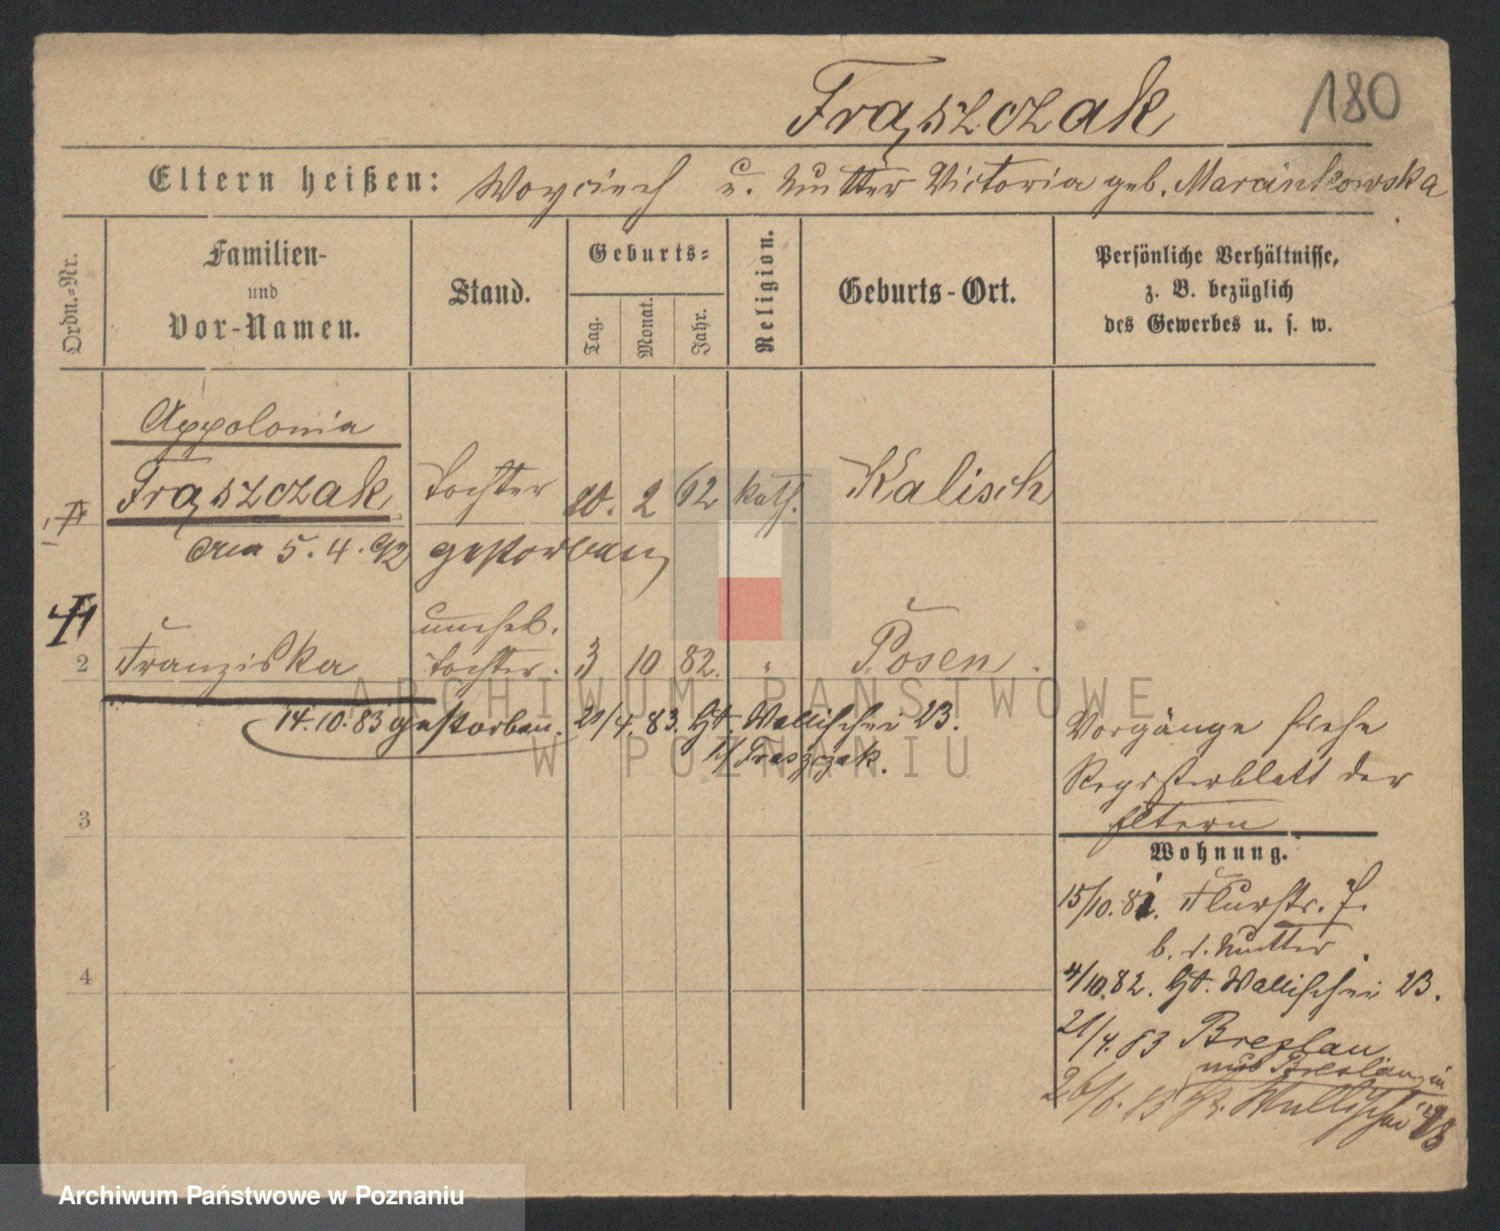 Frąszczak 180
Eltern heißen: Woyciech u. Mutter Victoria geb. Marcinkowska
Ordn.-Nr.
Familien-
und
Vor-Namen.
Stand.
Geburts-
Tag.
Monat.
Jahr.
Religion.
Geburts-Ort.
Persönliche Verhältnisse,
z. B. bezüglich
des Gewerbes u. s. w.
Appolonia
Frąszczak Tochter 20. 2 62 kath. Kalisch
am 5.4.92 gestorben
unehel.
2 Franziska Tochter. 3 10 82. " Posen.
14.10.83 gestorben. 21/4. 83. Gr. Wallischei 23.
b/ Fraszczak.
Vorgänge siehe
Registerblatt der
Eltern
3
Wohnung.
15/10.82. Flurstr. 7.
b. d. Mutter.
4
4/10.82. Gr. Wallischei 23.
21/4.83 Breslau
aus Breslau
26/6. 83 Gr. Wallischei
ARCHIWUM PAŃSTWOWE
W POZNANIU
Archiwum Państwowe w Poznaniu